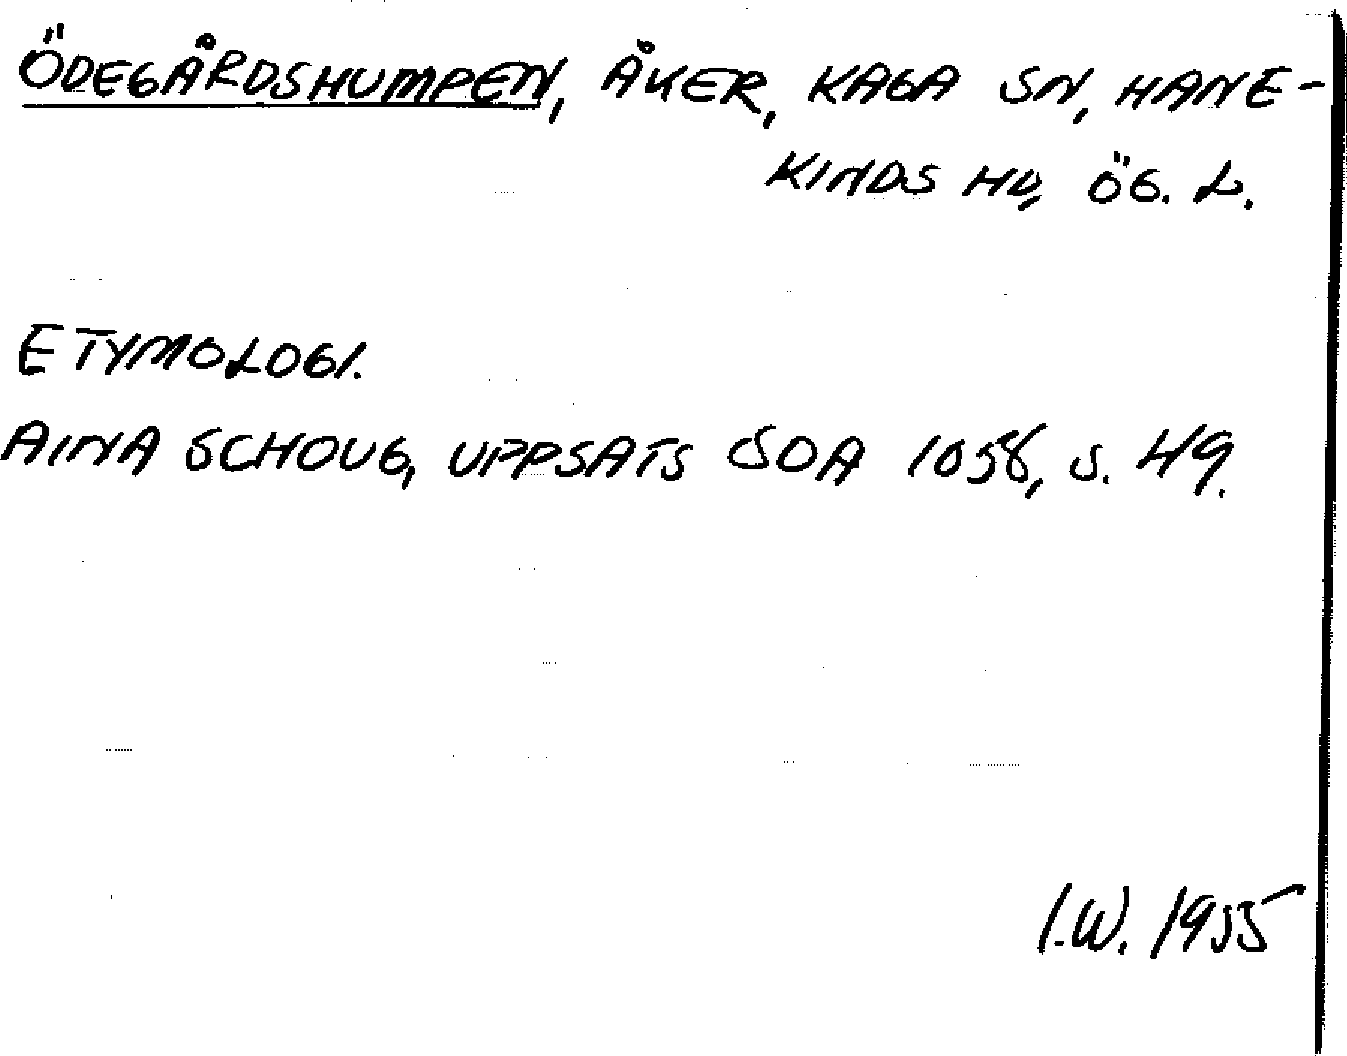 ÖDEGÅRDSHUMPEN, ÅKER, KAGA SN, HANE-
KINDS HD, ÖG. L.
ETYMOLOGI.
AINA SCHOUG, UPPSATS SOA 1058, S. 49.
I.W. 1955